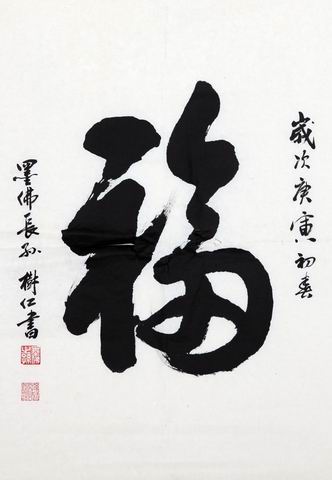 歲次庚寅初春
福
墨佛長孫樹仁書